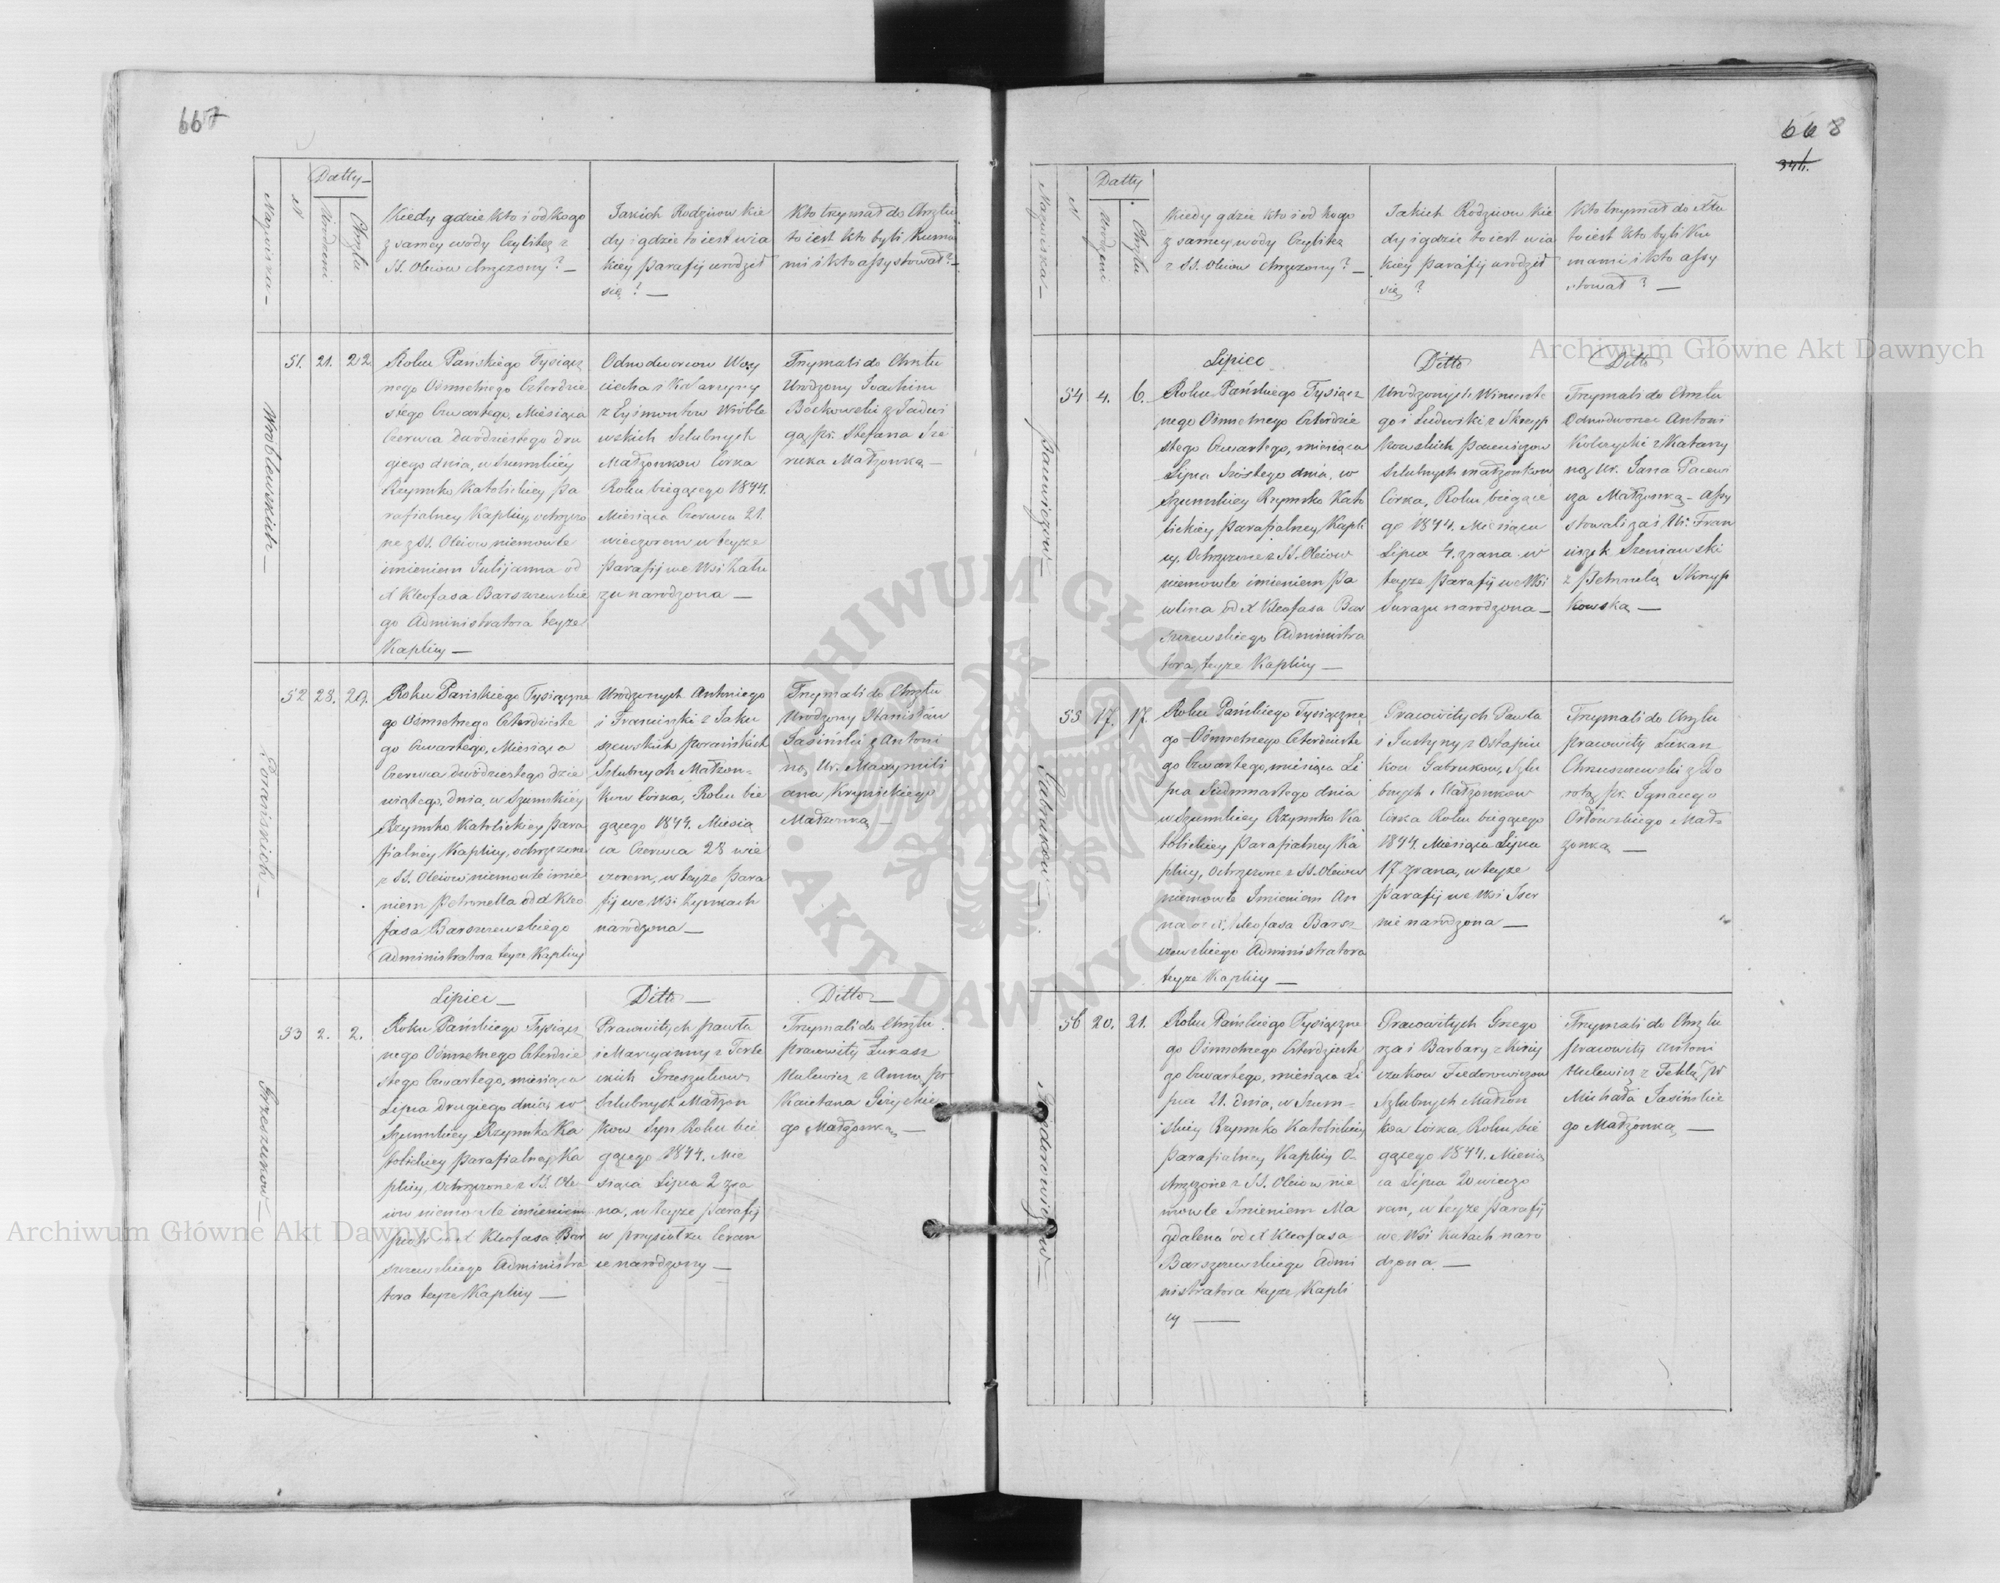 667
Datty
Nazwiska
N
Urodzeni
Chrztu
Kiedy gdzie kto i od kogo
z samey wody Czylitez z
SS. Oleiow chrzczony? —
Jakich Rodzicow Kie
dy i gdzie to iest w ia
kiey Parafij urodził
się? —
Kto trzymał do Chrztu
to iest kto byli Kuma
mi i kto assystował? —
Wroblewskich —
51. 21. 22
Roku Pańskiego Tysiącz
nego Ośmsetnego Czterdzie
stego Czwartego, Miesiąca
Czerwca dwudziestego dru
giego dnia, w Szumskiey
Rzymsko Katolickiey Pa
rafialney Kaplicy, ochrzczo
ne z SS. Oleiow niemowle
imieniem Julijanna od
X Kleofasa Barszczewskie
go Administratora teyze
Kaplicy —
Odnodworcow Woy
ciecha i Katarzyny
z Eysmontow Wróble
wskich Szlubnych
Małżonkow Córka
Roku biegącego 1844.
Miesiąca Czerwca 21.
wieczorem w teyze
Parafij we Wsi
narodzona —
Trzymali do Chrztu
Urodzony Joachim
Boćkowski z Jadwi
gą, Ur. Stefana
Małżonką —
52 28. 29.
Roku Pańskiego Tysiączne
go Ośmsetnego Czterdzieste
go Czwartego, Miesiąca
Czerwca dwódziestego dzie
wiątego, dnia, w Szumskiey
Rzymsko Katolickiey Para
fialney Kaplicy, ochrzczone
z SS. Oleiow niemowle imie
niem Petronella od X Kleo
fasa Barszczewskiego
Administratora teyze Kaplicy
Urodzonych Antoniego
i Franciszki z Jaku
szewskich
Szlubnych Małżon-
kow Córka, Roku bie
gącego 1844. Miesią
ca Czerwca 28 wie
czorem, w teyze Para
fij we Wsi
narodzona —
Trzymali do Chrztu
Urodzony Stanisław
Jasiński z Antoni
ną, Ur. Maxymili
ana Krynickiego
Małżonką —
Grzeszukow —
Lipiec —
Ditto —
Ditto —
53 2. 2.
Roku Pańskiego Tysiącz
nego Ośmsetnego Czterdzie
stego Czwartego, miesiąca
Lipca drugiego dnia, w
Szumskiey Rzymsko Ka
tolickiey Parafialney Ka
plicy, Ochrzczone z SS. Ole
iow niemowle imieniem
Piotr od X Kleofasa Bar
szczewskiego Administra
tora teyze Kaplicy —
Pracowitych Pawła
i Maryanny z
Grzeszukow
Szlubnych Małżon
kow Syn Roku bie
gącego 1844. Mie
siąca Lipca 2 zra
na, w teyze Parafij
w Przysiołku Ceran
ce narodzony —
Trzymali do Chrztu
Pracowity Łukasz
Hulewicz z Anną, Pr
Kaietana
go Małżonką —
668
344.
Datty
Nazwiska —
N
Urodzeni
Chrztu
Kiedy gdzie kto i od kogo
z samey wody Czylitez
z SS. Oleiow chrzczony? —
Jakich Rodzicow Kie
dy i gdzie to iest w ia
kiey Parafij urodził
się?
Kto trzymał do Chrztu
to iest kto byli Ku
mami i kto assy
stował? —
Pacewiczow —
Lipiec
Ditto
Ditto
54 4. 6.
Roku Pańskiego Tysiącz
nego Ośmsetnego Czterdzie
stego Czwartego, miesiąca
Lipca Szóstego dnia, w
Szumskiey Rzymsko Kato
lickiey Parafialney Kapli
cy, Ochrzczone z SS. Oleiow
niemowle imieniem Pa
wlina od X Kleofasa Bar
szczewskiego Administra
tora teyze Kaplicy —
Urodzonych Wincente
go i Ludwiki z Skrzyp
kowskich Pacewiczow
Szlubnych małżonkow
Córka, Roku biegące
go 1844. Miesiąca
Lipca 4. zrana w
teyze Parafij we Wsi
Surazu narodzona —
Trzymali do Chrztu
Odnodworzec Antoni
Kobrycki z Katarzy
ną Ur. Jana Pacewi
cza Małżonką — Assy
stowali zaś Ur. Fran
ciszek Szeniawski
z Petronelą Skrzyp
kowską —
Gabrukow —
55 17. 17
Roku Pańskiego Tysiączne
go Ośmsetnego Czterdzieste
go Czwartego, miesiąca Li
pca Siedmnastego dnia
w Szumskiey Rzymsko Ka
tolickiey Parafialney Ka
plicy, Ochrzczone z SS. Oleiow
niemowle Imieniem An
na od X. Kleofasa Barsz
czewskiego Administratora
teyze Kaplicy —
Pracowitych Pawła
i Justyny z Ostapiu
kow Gabrukow, Szlu
bnych Małżonkow
Córka Roku biegącego
1844. Miesiąca Lipca
17 zrana, w teyze
Parafij we Wsi Iser
nie narodzona —
Trzymali do Chrztu
Pracowity Łukasz
Chruszczewski z Do
rotą, Pr. Ignacego
Orłowskiego Mał-
żonką —
Fiedorowiczow —
56 20. 21.
Roku Pańskiego Tysiączne
go Ośmsetnego Czterdzieste
go Czwartego, miesiąca Li
pca 21. Dnia, w Szum-
skiey Rzymsko Katolickiey
Parafialney Kaplicy O-
chrzczone z SS. Oleiow nie
mowle Imieniem Ma
gdalena od X Kleofasa
Barszczewskiego Admi
nistratora teyze Kapli
cy —
Pracowitych Grzego
rza i Barbary z
Fiedorowiczow
Szlubnych Małżon
kow Córka, Roku bie
gącego 1844. Miesią
ca Lipca 20 wieczo
rem, w teyze Parafij
we Wsi Kutach naro
dzona. —
Trzymali do Chrztu
Pracowity Antoni
Hulewicz z Teklą, Pr
Michała Jasińskie
go Małżonką —
Archiwum Główne Akt Dawnych
Archiwum Główne Akt Dawnych
ARCHIWUM GŁÓWNE
AKT DAWNYCH